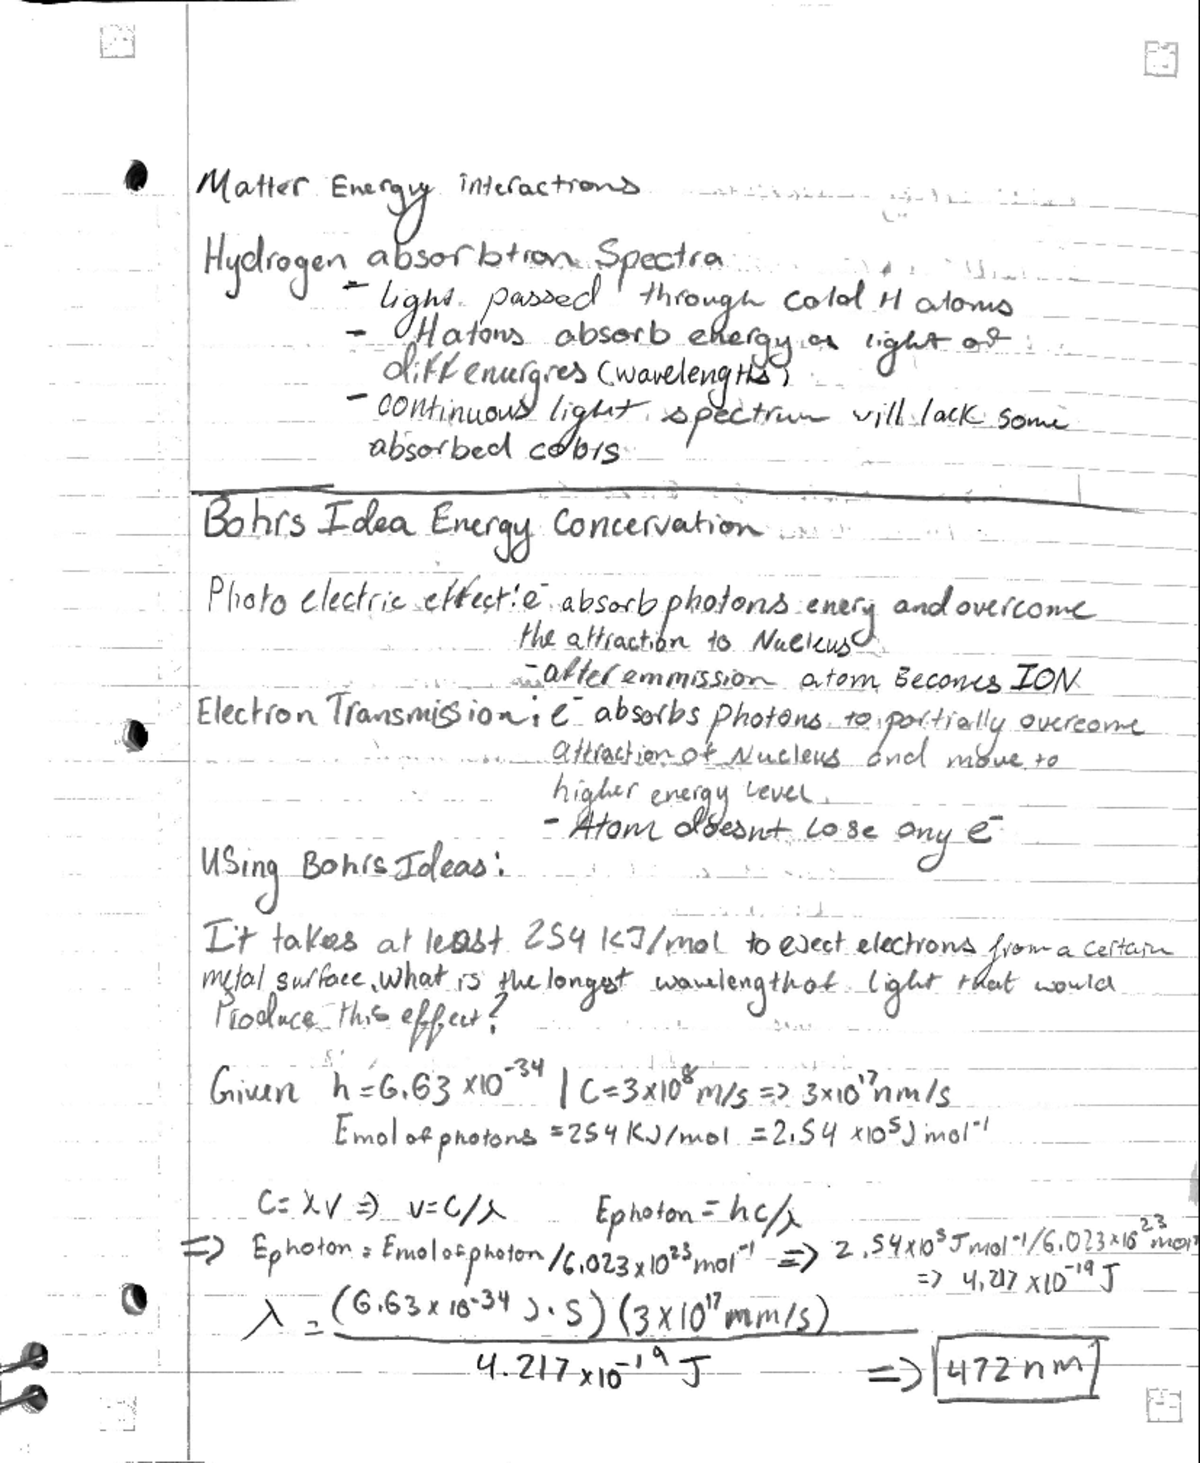 Matter Energy interactions
Hydrogen absorbtion Spectra
- light passed through cold H atoms
- H atoms absorb energy as light of
diff enurgies (wavelengths)
- continuous light spectrum will lack some
absorbed colors
Bohrs Idea Energy Concervation
Photo electric effect: e⁻ absorb photons enery and overcome
the attraction to Nucleus
- after emmission atom Becomes ION
Electron Transmission: e⁻ absorbs photons to partially overcome
attraction of Nucleus and move to
higher energy level.
- Atom doesnt lose any e⁻
Using Bohrs Ideas:
It takes at least 254 KJ/mol to eject electrons from a certain
metal surface, What is the longest wavelength of light that would
Produce this effect?
Given h = 6.63 ×10⁻³⁴ | C=3×10⁸ m/s => 3×10¹⁷ nm/s
Emol of photons = 254 KJ/mol = 2.54 ×10⁵ J mol⁻¹
C= λV => v= C/λ Ephoton = hc/λ
=> Ephoton = Emol of photon /6.023×10²³ mol⁻¹ => 2.54×10⁵ J mol⁻¹/6.023×10²³
=> 4.217 ×10⁻¹⁹ J
λ = (6.63 × 10⁻³⁴ J·S) (3×10¹⁷ mm/s)
4.217 ×10⁻¹⁹ J => 472 nm